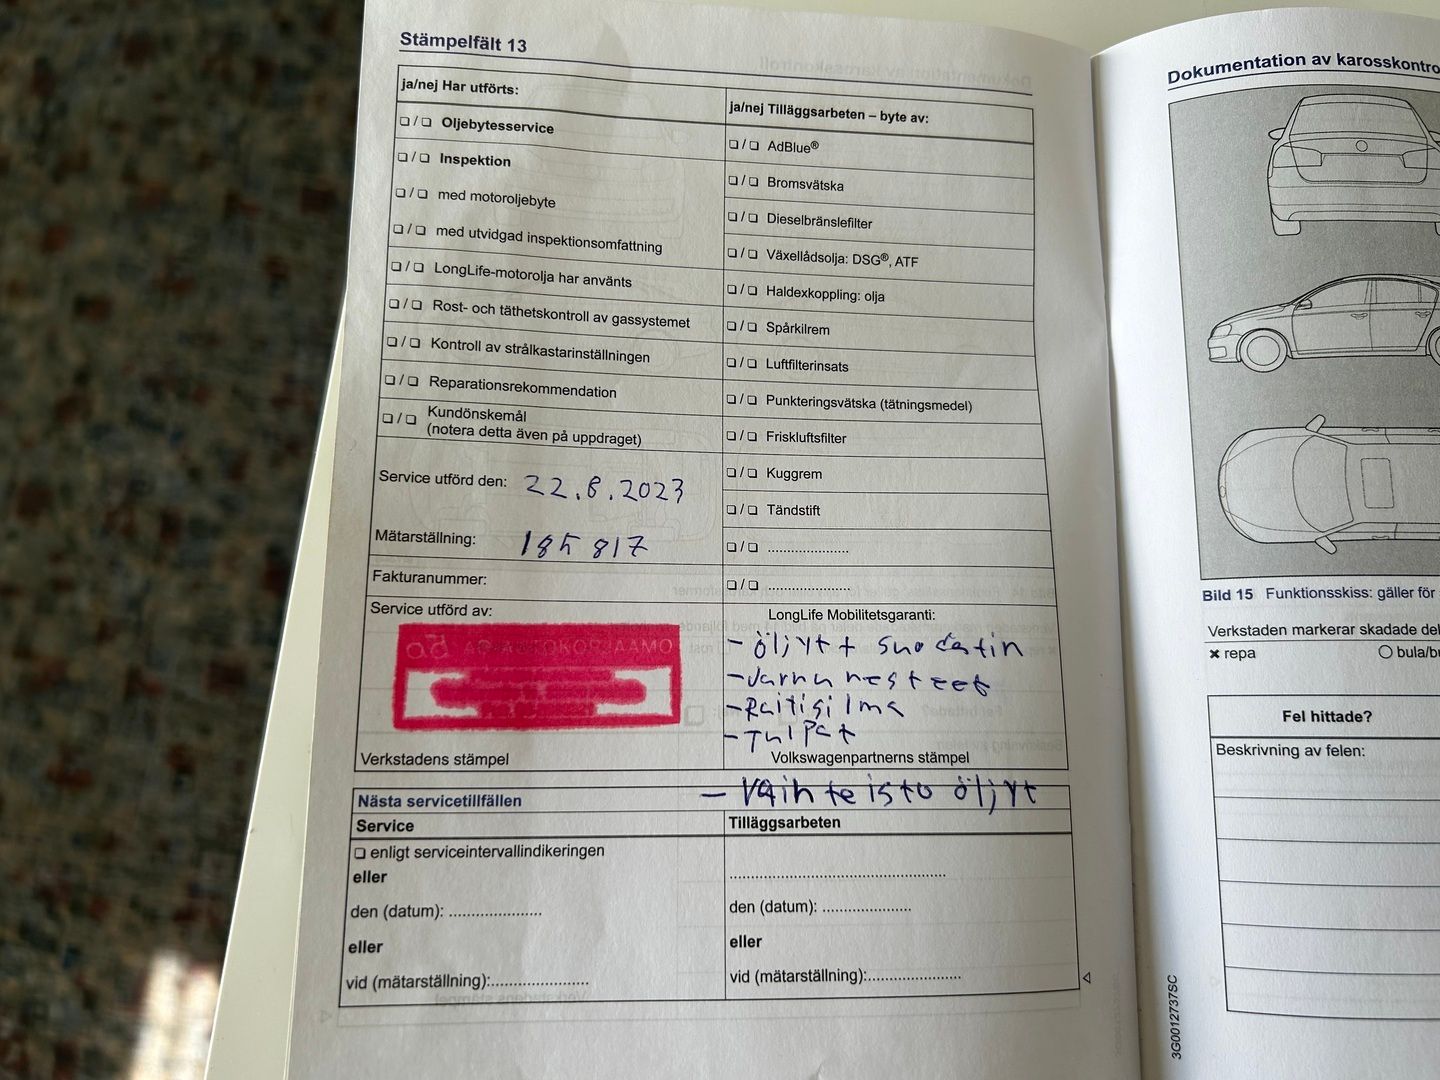 Stämpelfält 13
ja/nej Har utförts:
❏ / ❏ Oljebytesservice
❏ / ❏ Inspektion
❏ / ❏ med motoroljebyte
❏ / ❏ med utvidgad inspektionsomfattning
❏ / ❏ LongLife-motorolja har använts
❏ / ❏ Rost- och täthetskontroll av gassystemet
❏ / ❏ Kontroll av strålkastarinställningen
❏ / ❏ Reparationsrekommendation
❏ / ❏ Kundönskemål
(notera detta även på uppdraget)
Service utförd den: 22.8.2023
Mätarställning: 185 817
Fakturanummer:
Service utförd av:
Verkstadens stämpel
ja/nej Tilläggsarbeten – byte av:
❏ / ❏ AdBlue®
❏ / ❏ Bromsvätska
❏ / ❏ Dieselbränslefilter
❏ / ❏ Växellådsolja: DSG®, ATF
❏ / ❏ Haldexkoppling: olja
❏ / ❏ Spårkilrem
❏ / ❏ Luftfilterinsats
❏ / ❏ Punkteringsvätska (tätningsmedel)
❏ / ❏ Friskluftsfilter
❏ / ❏ Kuggrem
❏ / ❏ Tändstift
❏ / ❏ .....................
❏ / ❏ .....................
LongLife Mobilitetsgaranti:
- öljyt + suodatin
- Jarrunesteet
- Raitisilma
- Tulpat
Volkswagenpartnerns stämpel
- Vaihteisto öljyt
Nästa servicetillfällen
Service
❏ enligt serviceintervallindikeringen
eller
den (datum): .....................
eller
vid (mätarställning):......................
Tilläggsarbeten
................................................
den (datum): ....................
eller
vid (mätarställning):.....................
Dokumentation av karosskontro
Bild 15 Funktionsskiss: gäller för
Verkstaden markerar skadade del
✖ repa
○ bula/bu
Fel hittade?
Beskrivning av felen:
3G0012737SC